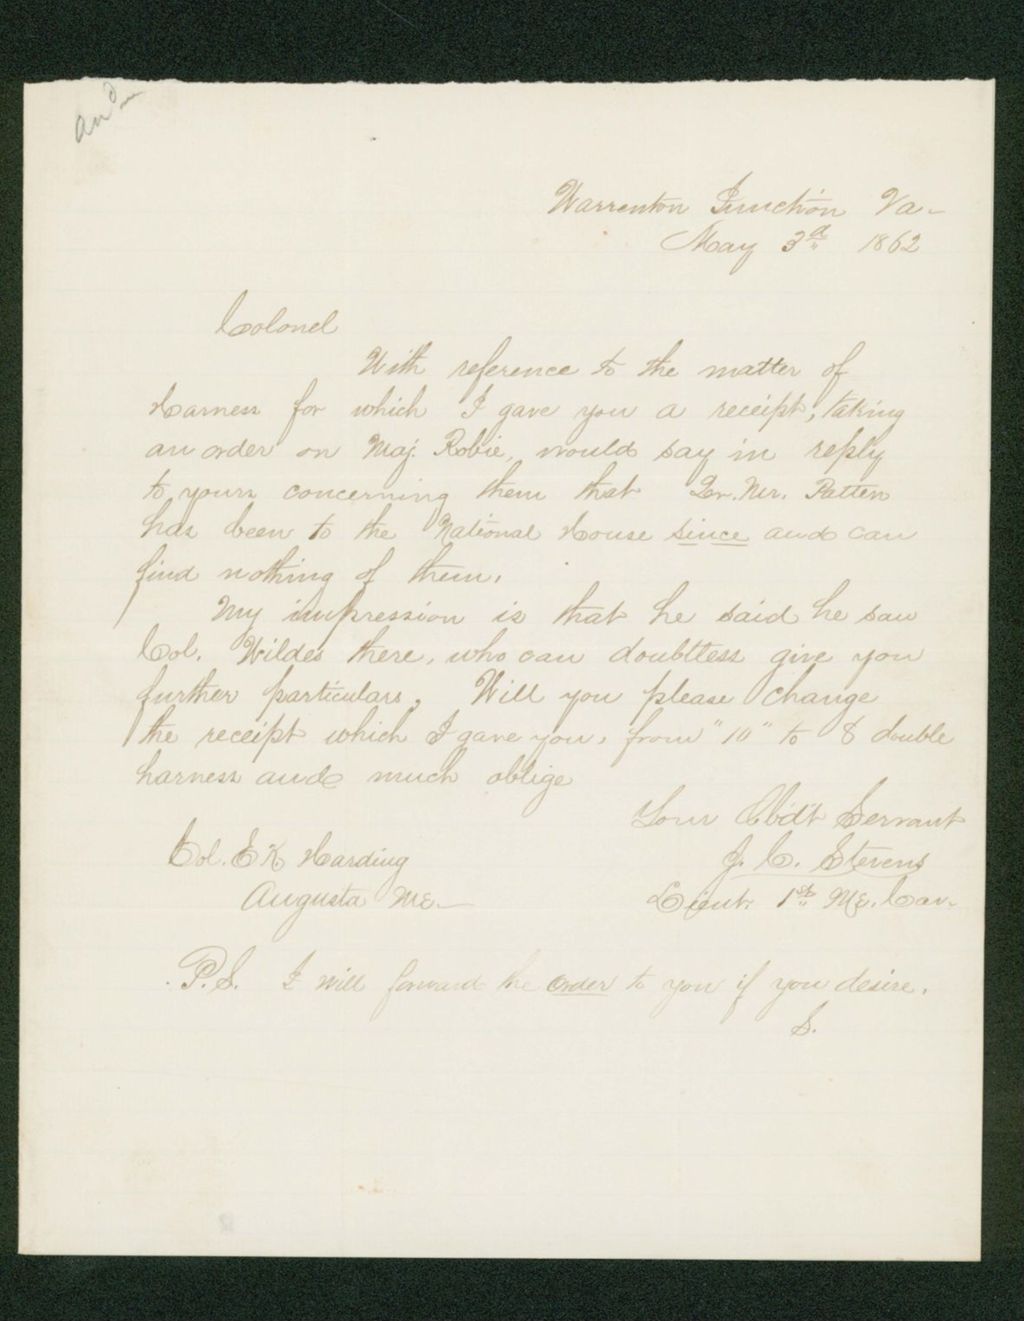 and
Warrenton Junction Va-
May 3d 1862
Colonel
With reference to the matter of
Harness for which I gave you a receipt; taking
an order on Maj. Robie, would say in reply
to yours concerning them that Qr. Mr. Patten
has been to the National House since and can
find nothing of them.
My impression is that he said he saw
Col. Wildes there, who can doubtless give you
further particulars. Will you please change
the receipt which I gave you, from "10" to 8 double
harness and much oblige
Your Obdt Servant
J. C. Stevens
Lieut. 1st Me. Cav.
Col. E K Harding
Augusta Me-
P.S. I will forward the order to you if you desire.
S.